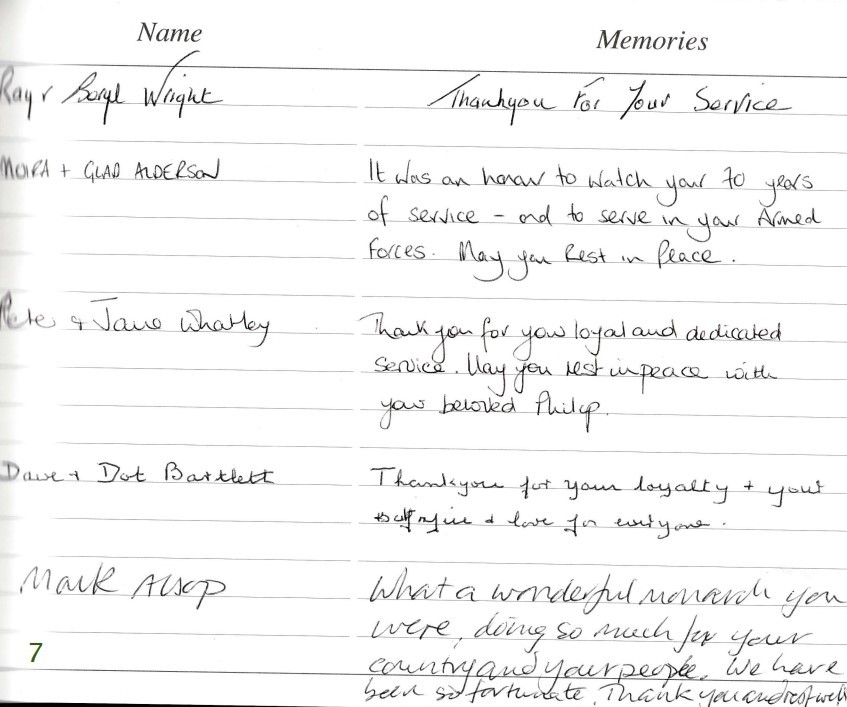 Name Memories
Ray & Beryl Wright Thankyou For Your Service
MOIRA + GLAD ALDERSON It was an honour to watch your 70 years
of service - and to serve in your Armed
Forces. May you Rest in Peace.
Pete & Jane Whatley Thank you for your loyal and dedicated
Service. May you rest in peace with
your beloved Philip.
Dave + Dot Bartlett Thankyou for your loyalty + your
& love for everyone.
Mark Alsop What a wonderful monarch you
were, doing so much for your
7
country and your people. We have
been so fortunate. Thank you and rest well